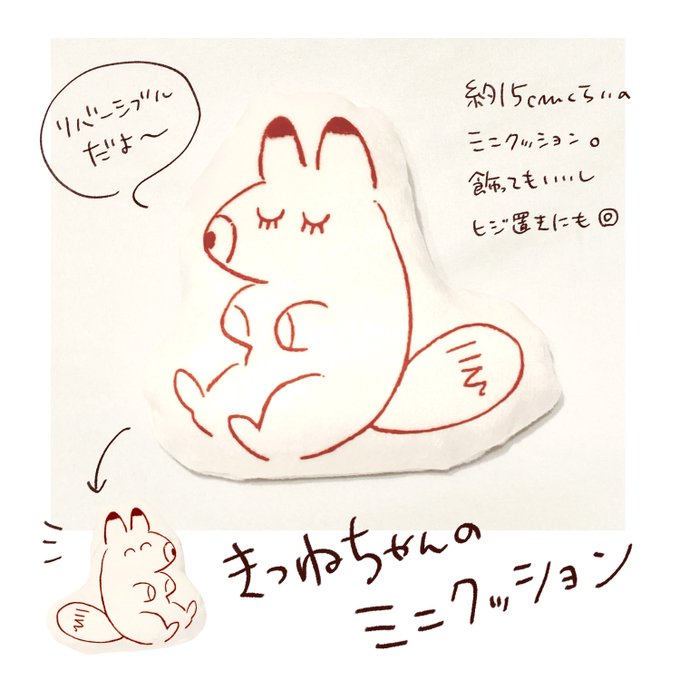 リバーシブル
だよ〜
約15cmくらいの
ミニクッション。
飾ってもいいし
ヒジ置きにも◎
きつねちゃんの
ミニクッション